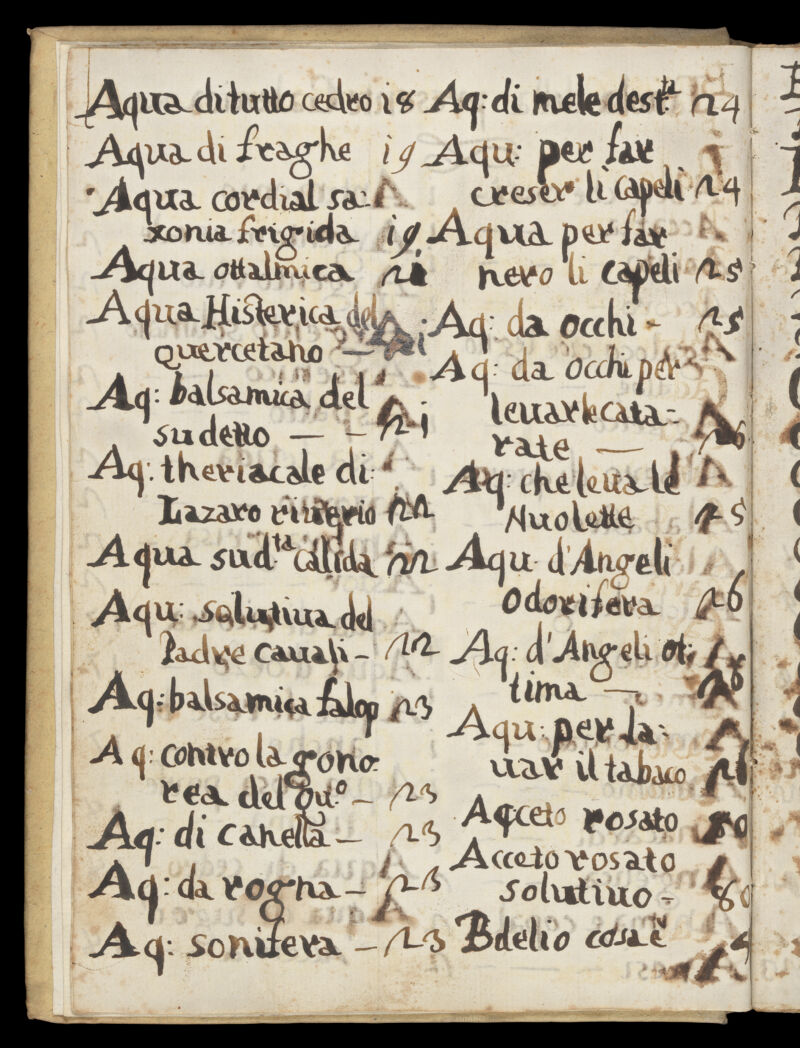 Aqua di tutto cedro 18
Aqua di fraghe 19
Aqua cordial sa=
xonia frigida 19
Aqua ottalmica 21
Aqua Histerica del
quercetano — 21
Aq: balsamica del
sudetto — – 21
Aq: theriacale di
Lazaro riuerio 22
Aqua sud.ta calida 22
Aqu: solutiua del
Padre cauali – 22
Aq: balsamica falop 23
Aq: contro la gono=
rea del qu.o – 23
Aq: di canella – 23
Aq: da rogna – 23
Aq: sonifera – 23
Aq: di mele dest.ta 24
Aqu: per far
creser li capeli 24
Aqua per far
nero li capeli 25
Aq: da occhi – 25
Aq: da occhi per
leuar le cata=
rate — 26
Aq: che leua le
Nuolette 25
Aqu d'Angeli
odorifera 26
Aq: d'Angeli ot:
tima — 26
Aqu: per la=
uar il tabaco 26
Acceto rosato 80
Acceto rosato
solutiuo – 80
Bdelio cosa è